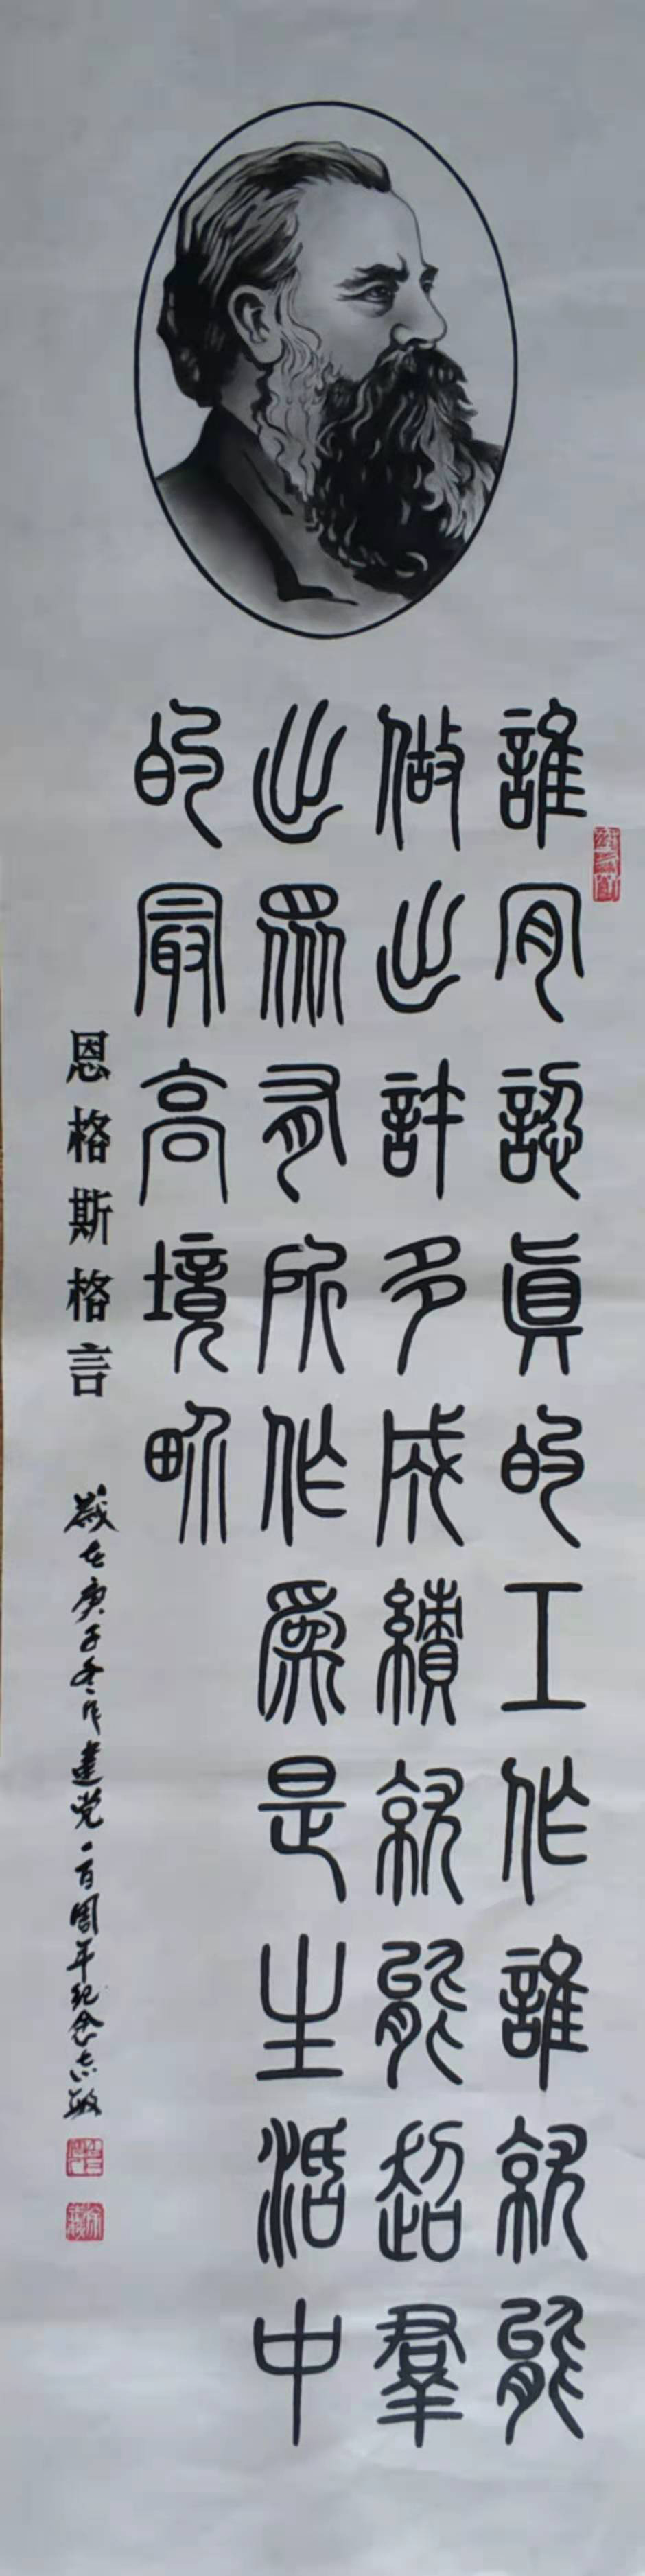 誰肎認真的工作誰就能
做出許多成績就能超羣
出眾有所作為是生活中
的最高境界
恩格斯格言
歲在庚子冬作建党一百周年纪念志敏